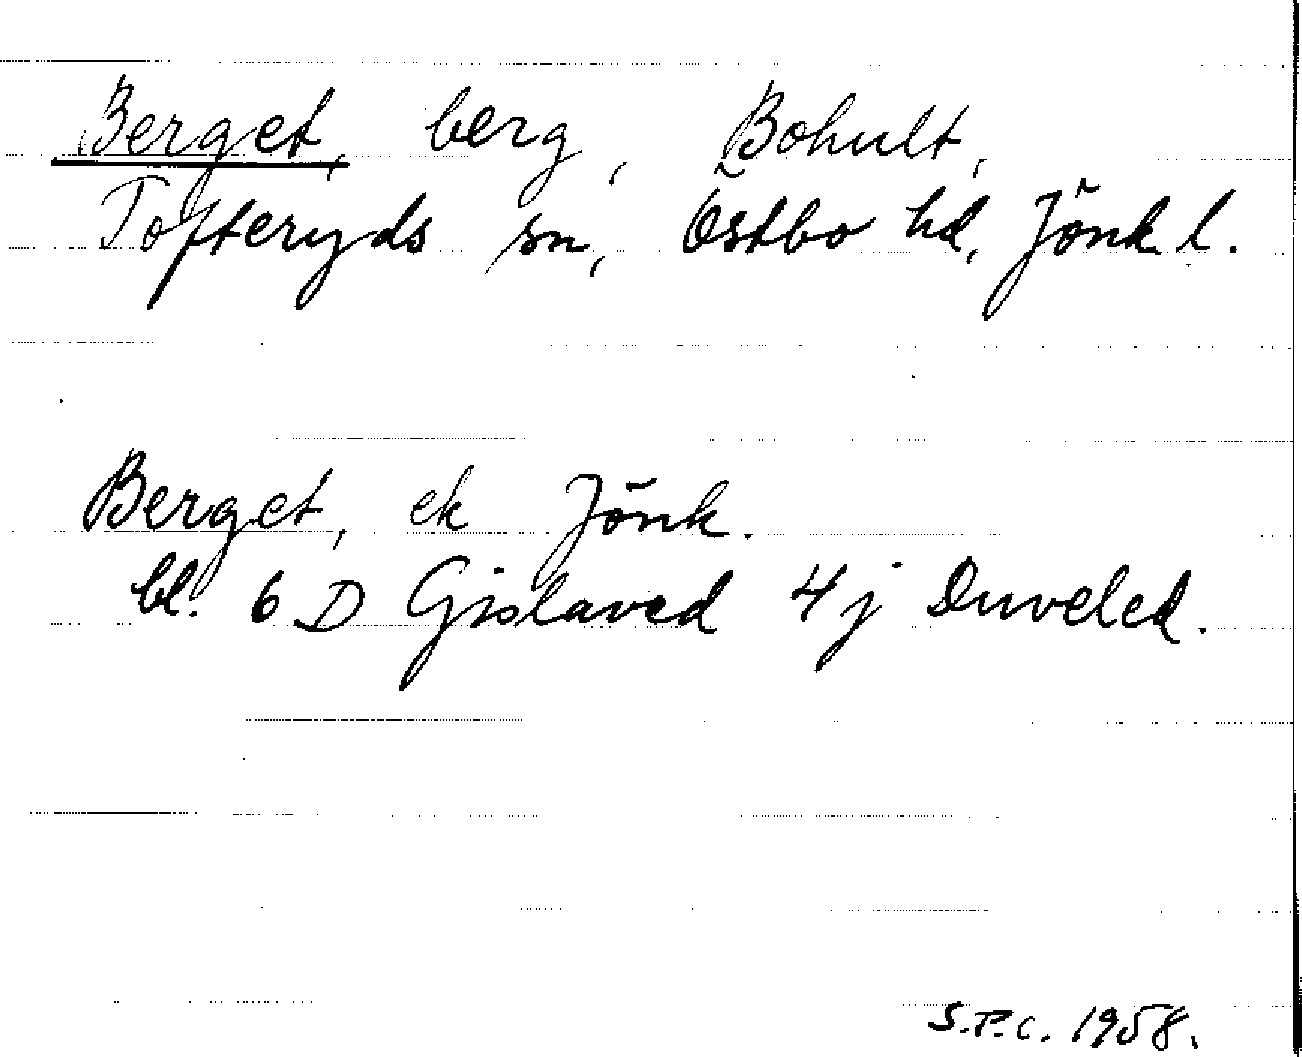 Berget, berg, Bohult,
Tofteryds sn, Östbo hd, Jönk. l.
Berget, ek Jönk.
bl. 6 D Gislaved 4 j Duveled.
S.P.C. 1958.